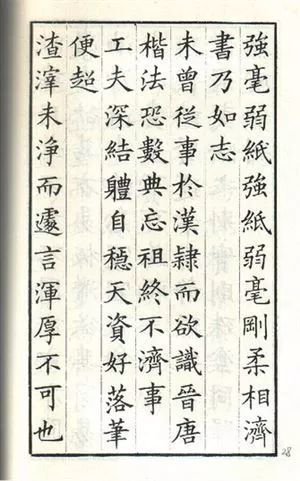 強毫弱紙強紙弱毫剛柔相濟
書乃如志
未曾從事於漢隸而欲識晉唐
楷法恐數典忘祖終不濟事
工夫深結體自穩天資好落筆
便超
渣滓未淨而遽言渾厚不可也
28